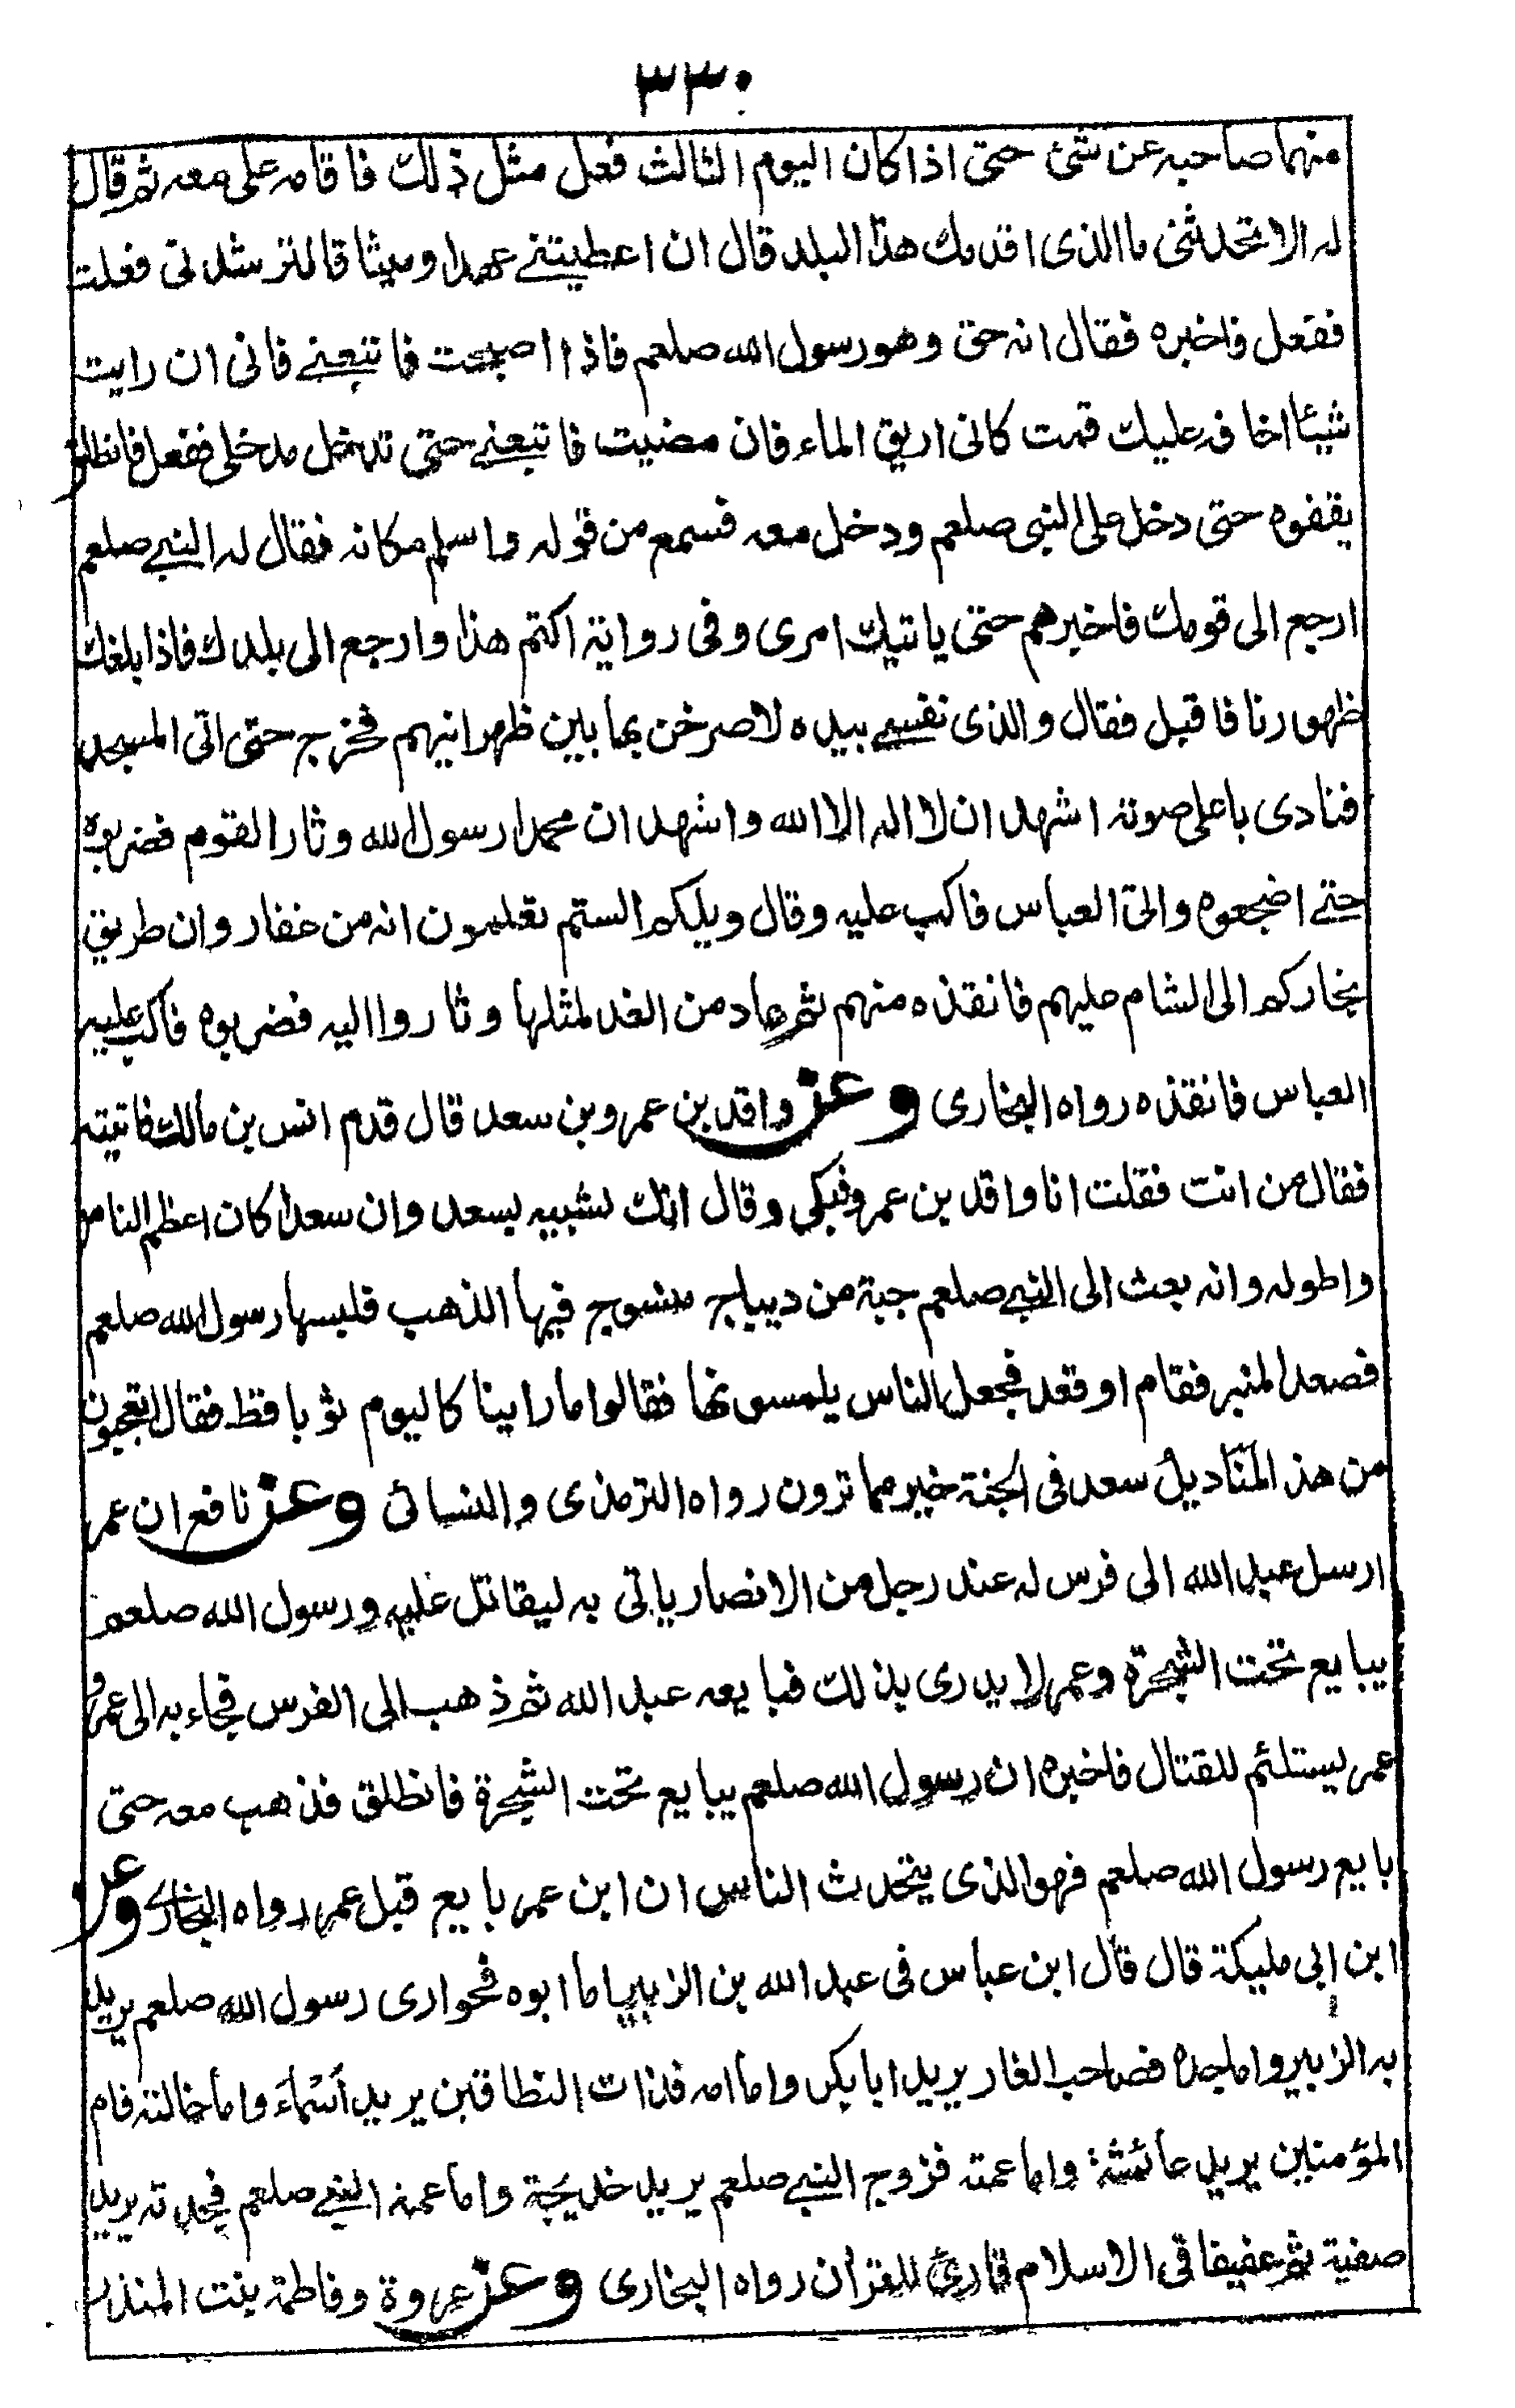 ٣٣٠
منهما صاحبه عن شئ حتى اذا كان اليوم الثالث فعل مثل ذلك فاقامه على معه ثم قال
له الا تحدثنى ما الذى اقدمك هذا البلد قال ان اعطيتنے عهدا وميثاقا لترشدنى فعلت
ففعل فاخبره فقال انه حق وهو رسول الله صلعم فاذا اصبحت فاتبعنے فانى ان رايت
شيئا اخاف عليك قمت كانى اريق الماء فان مضيت فاتبعنے حتى تدخل مدخلى ففعل فانطلق
يقفوه حتى دخل على النبى صلعم ودخل معه فسمع من قوله واسلم مكانه فقال له النبے صلعم
ارجع الى قومك فاخبرهم حتى ياتيك امرى وفى رواية اكتم هذا وارجع الى بلدك فاذا بلغك
ظهورنا فاقبل فقال والذى نفسے بيده لاصرخن بها بين ظهرانيهم فخرج حتى اتى المسجد
فنادى باعلى صوته اشهد ان لا اله الا الله واشهد ان محمدا رسول الله وثار القوم فضربوه
حتے اضجعوه واتى العباس فاكب عليه وقال ويلكم الستم تعلمون انه من غفار وان طريق
تجاركم الى الشام عليهم فانقذه منهم ثم عاد من الغد لمثلها وثاروا اليه فضربوه فاكب عليه
العباس فانقذه رواه البخارى وعن واقد بن عمرو بن سعد قال قدم انس بن مالك فاتيته
فقال من انت فقلت انا واقد بن عمرو فبكى وقال انك لشبيه بسعد وان سعدا كان اعظم الناس
واطوله وانه بعث الى النبے صلعم جبة من ديباج منسوج فيها الذهب فلبسها رسول الله صلعم
فصعد المنبر فقام او قعد فجعل الناس يلمسونها فقالوا ما راينا كاليوم ثوبا قط فقال اتعجبون
من هذ المَنَاديلُ سعد فى الجنة خير مما ترون رواه الترمذى والنسائى وعن نافع ان عمر
ارسل عبد الله الى فرس له عند رجل من الانصار ياتى به ليقاتل عليه ورسول الله صلعم
يبايع تحت الشجرة وعمر لا يدرى بذلك فبايعه عبد الله ثم ذهب الى الفرس فجاء به الى عمر و
عمر يستلئم للقتال فاخبره ان رسول الله صلعم يبايع تحت الشجرة فانطلق فذهب معه حتى
بايع رسول الله صلعم فهو الذى يتحدث الناس ان ابن عمر بايع قبل عمر رواه البخارى وعن
ابن ابى مليكة قال قال ابن عباس فى عبد الله بن الزبير اما ابوه فحوارى رسول الله صلعم يريد
به الزبير واما جده فصاحب الغار يريد ابا بكر واما امه فذات النطاقين يريد أسْمَاءَ واما خالته فام
المؤمنين يريد عائشة واما عمته فزوج النبے صلعم يريد خديجة واما عمة النبے صلعم فجدته يريد
صفية ثم عفيفا فى الاسلام قارئ للقران رواه البخارى وعن عروة وفاطمة بنت المنذر